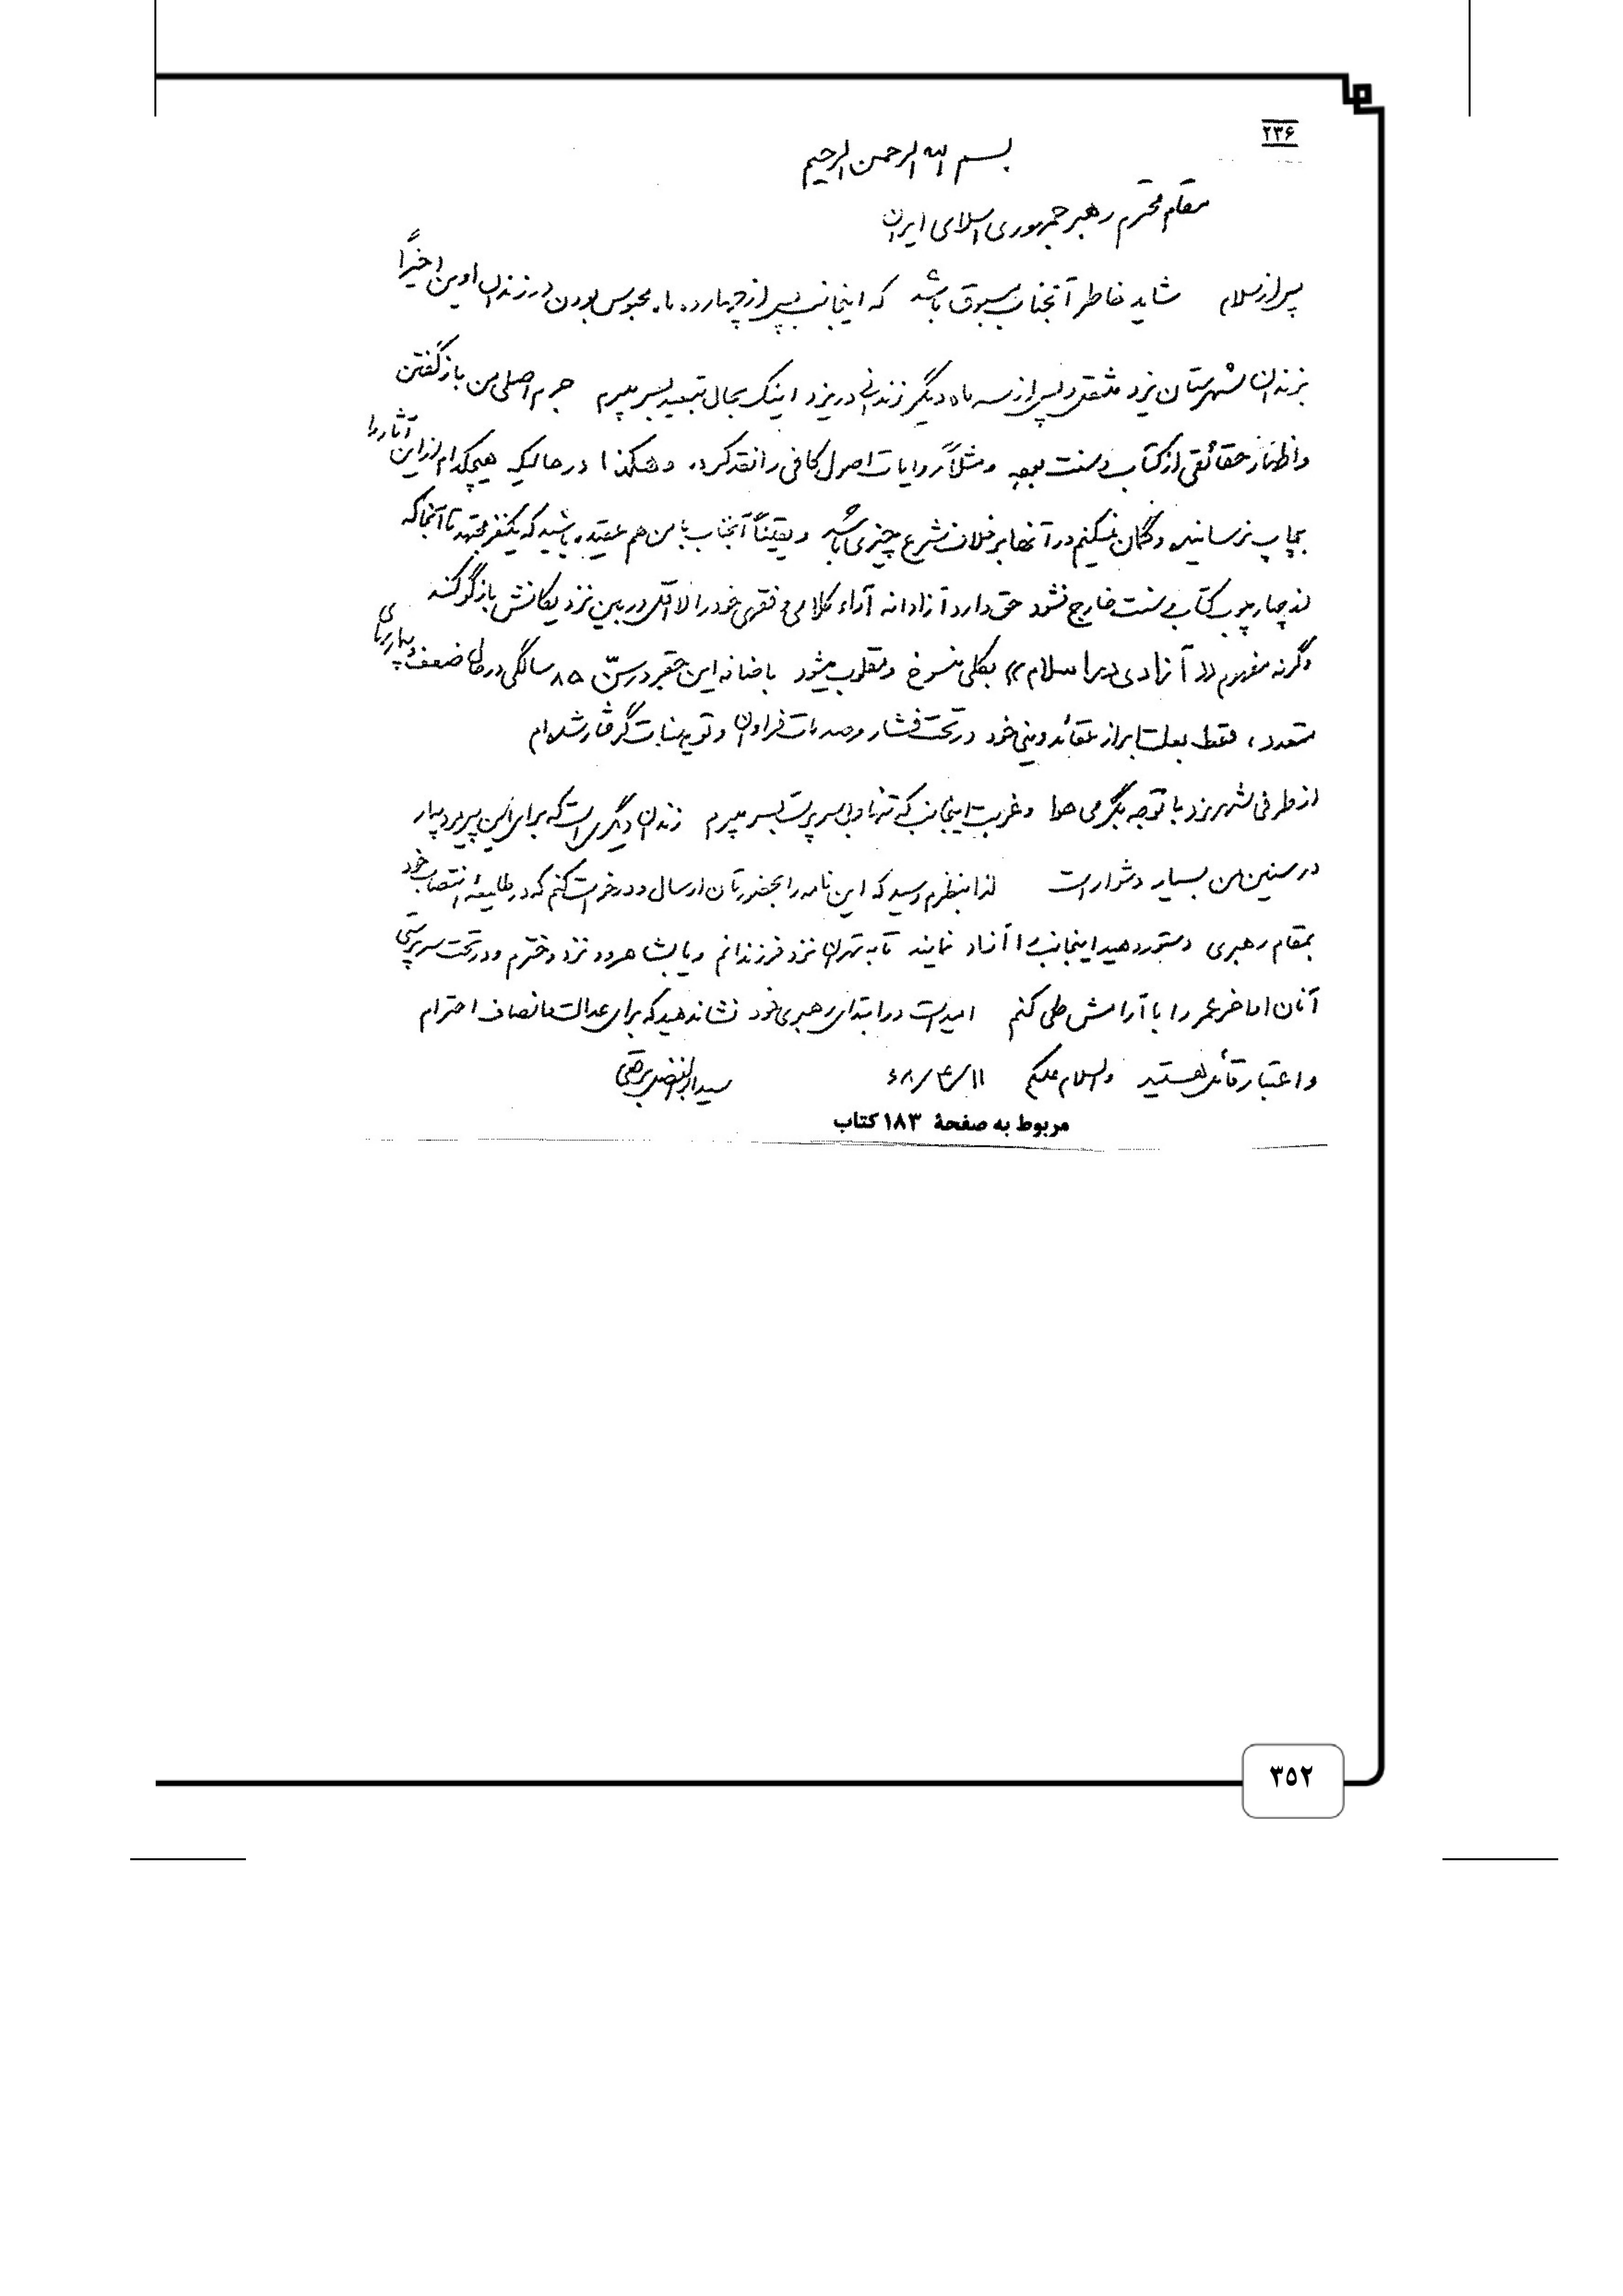 ۲۳۶
بسم الله الرحمن الرحیم
مقام محترم رهبر جمهوری اسلامی ایران
پس از سلام شاید خاطر آنجناب مسبوق باشد که اینجانب پس از چهارده ماه محبوس بودن در زندان اوین اخیراً
بزندان شهرستان یزد منتقل و پس از سه ماه دیگر زندانی در یزد اینک بحال تبعید بسر میبرم جرم اصلی من بازگفتن
و اظهار حقائقی از کتاب و سنت بوده و مثلاً روایات اصول کافی را نقد کرده و هکذا در حالیکه هیچکدام از این آثار را
بچاپ نرسانیده و گمان نمیکنم در آنها برخلاف شرع چیزی باشد و یقیناً آنجناب با من هم عقیده باشید که یکنفر مجتهد تا آنجا که
از چارچوب کتاب و سنت خارج نشود حق دارد آزادانه آراء کلامی و فقهی خود را لااقل در بین نزدیکانش بازگو کند
وگرنه مفهوم «آزادی در اسلام» بکلی منسوخ و مقلوب میشود باضافه این حقیر در سنّ ۸۵ سالگی در حال ضعف و بیماریهای
متعدد، فقط بعلت ابراز عقائد دینی خود در تحت فشار و صدمات فراوان و توهینات گرفتار شده‌ام
از طرفی شهر یزد با توجه بگرمی هوا و غربت اینجانب که تنها و بی سرپرست بسر میبرم زندان دیگری است که برای این پیرمرد بیمار
در سنین من بسیار دشوار است لذا بنظرم رسید که این نامه را بحضورتان ارسال و درخواست کنم که در طلیعهٔ انتصاب خود
بمقام رهبری دستور دهید اینجانب را آزاد نمایند تا به تهران نزد فرزندانم و یا بشاهرود نزد دخترم و در تحت سرپرستی
آنان اواخر عمر را با آرامش طی کنم امید است در ابتدای رهبری خود نشان دهید که برای عدالت و انصاف احترام
و اعتبار قائل هستید والسلام علیکم ۶۸/۳/۱۱ سید ابوالفضل برقعی
مربوط به صفحهٔ ۱۸۳ کتاب
۳۵۲